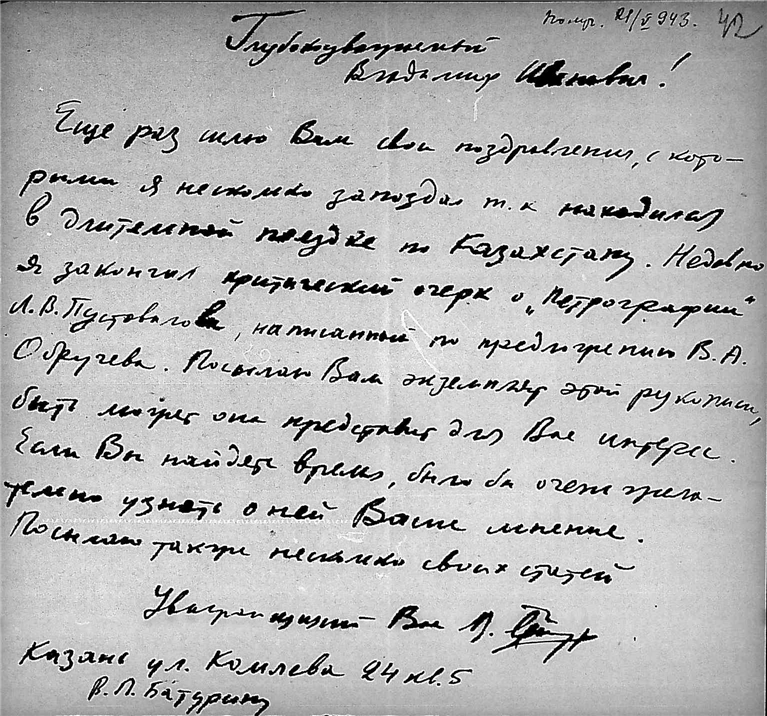 Получ. 21/V 943. 42
Глубокоуважаемый
Владимир Иванович!
Еще раз шлю Вам свои поздравления, с кото-
рыми я несколько запоздал т.к находился
в длительной поездке по Казахстану. Недавно
я закончил критический очерк о „Петрографии“
Л.В. Пустовалова, написанной по предложению В.А.
Обручева. Посылаю Вам экземпляр этой рукописи,
быть может она представит для Вас интерес.
Если Вы найдете время, было бы очень жела-
тельно узнать о ней Ваше мнение.
Посылаю также несколько своих статей
Уважающий Вас В.
Казань ул. Комлева 24 кв. 5
В.П. Батурину